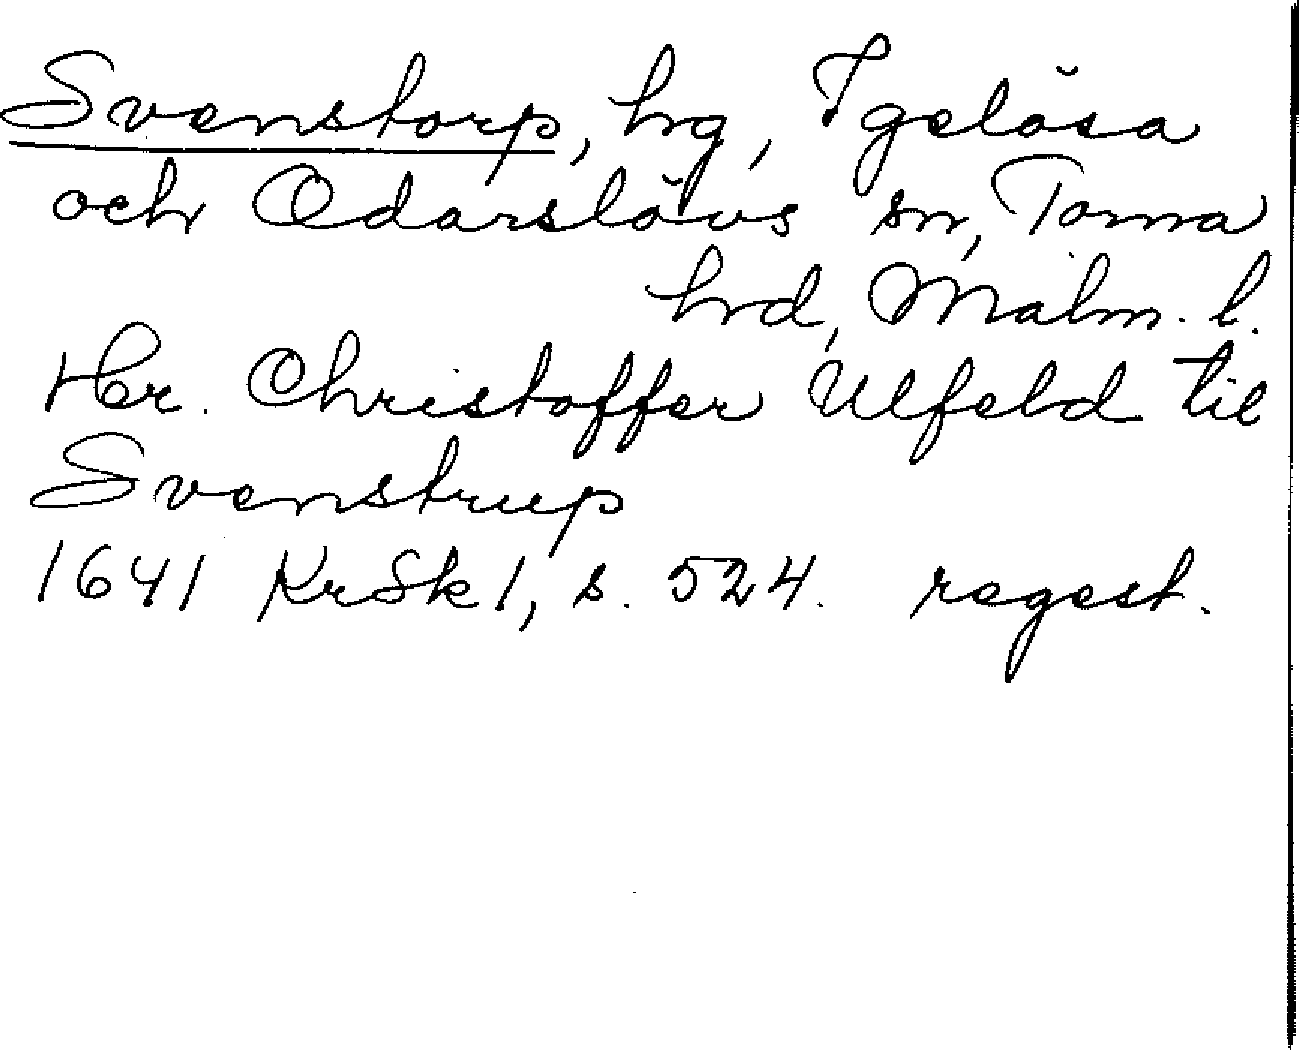 Svenstorp, hg, Igelösa
och Odarslövs sn, Torna
hrd, Malm. l.
Her. Christoffer Ulfeld til
Svenstrup
1641 KrSk 1, s. 524. regest.